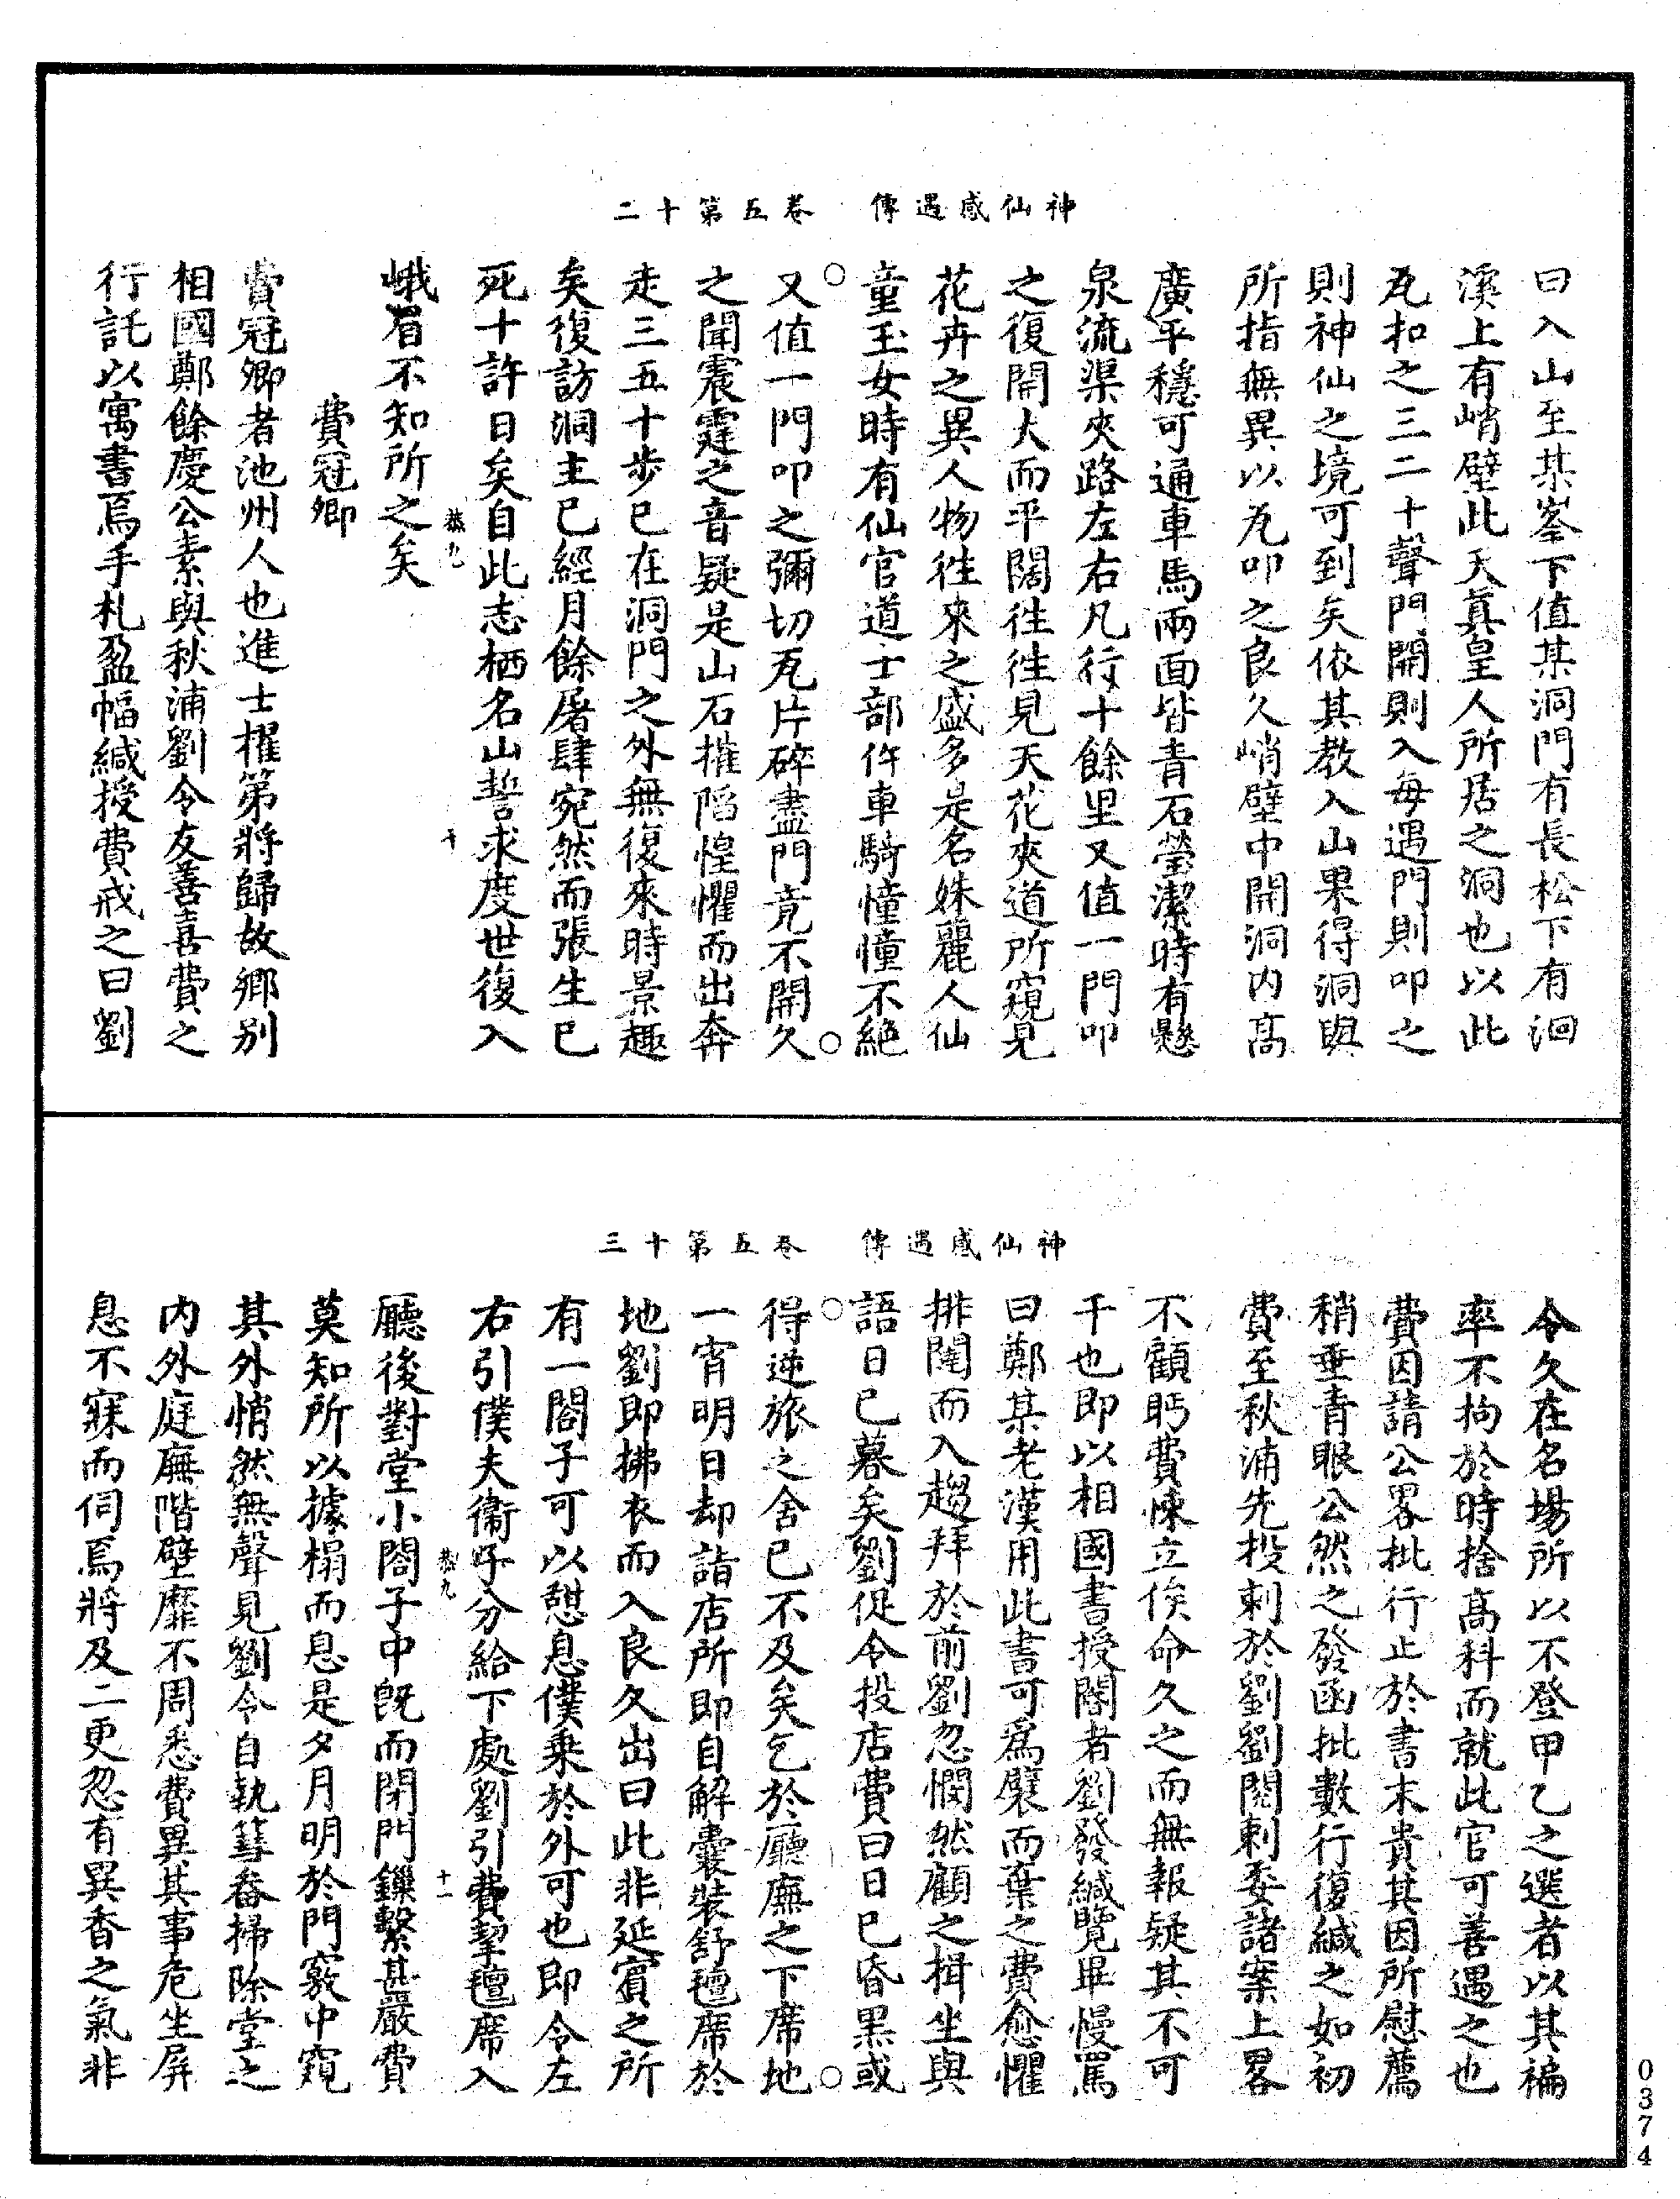 神仙感遇傳　卷五第十二
曰入山至某峯下值某洞門有長松下有洄
溪上有峭壁此天真皇人所居之洞也以此
瓦扣之三二十聲門開則入每遇門則叩之
則神仙之境可到矣依其教入山果得洞與
所指無異以瓦叩之良久峭壁中開洞内高
廣平穩可通車馬兩面皆青石瑩潔時有懸
泉流渠夾路左右凡行十餘里又值一門叩
之復開大而平闊往往見天花夾道所窺見
花卉之異人物往來之盛多是名姝麗人仙
童玉女時有仙官道士部仵車騎憧憧不絶
又值一門叩之彌切瓦片碎盡門竟不開久
之聞震霆之音疑是山石摧陷惶懼而出奔
走三五十步已在洞門之外無復來時景趣
矣復訪洞主已經月餘屠肆宛然而張生已
死十許日矣自此志栖名山誓求度世復入
恭九　十
峨眉不知所之矣
費冠卿
費冠卿者池州人也進士擢第將歸故鄉别
相國鄭餘慶公素與秋浦劉令友善喜費之
行託以寓書焉手札盈幅緘授費戒之曰劉
神仙感遇傳　卷五第十三
令久在名場所以不登甲乙之選者以其褊
率不拘於時捨高科而就此官可善遇之也
費因請公畧批行止於書末貴其因所慰薦
稍垂青眼公然之發函批數行復緘之如初
費至秋浦先投刺於劉劉閱刺委諸案上畧
不顧眄費悚立俟命久之而無報疑其不可
干也即以相國書授閽者劉發緘覽畢慢罵
曰鄭某老漢用此書可為襞而棄之費愈懼
排闥而入趨拜於前劉忽憫然顧之揖坐與
語日已暮矣劉促令投店費曰日已昏黑或
得逆旅之舍已不及矣乞於廳廡之下席地
一宵明日却詣店所即自解囊裝舒氊席於
地劉即拂衣而入良久出曰此非延賓之所
有一閤子可以憩息僕乘於外可也即令左
右引僕夫衞子分給下處劉引費挈氊席入
恭九　十一
廳後對堂小閤子中旣而閉門鏁繫甚嚴費
莫知所以據榻而息是夕月明於門竅中窺
其外悄然無聲見劉令自執篲畚掃除堂之
内外庭廡階壁靡不周悉費異其事危坐屏
息不寐而伺焉將及二更忽有異香之氣非
0374